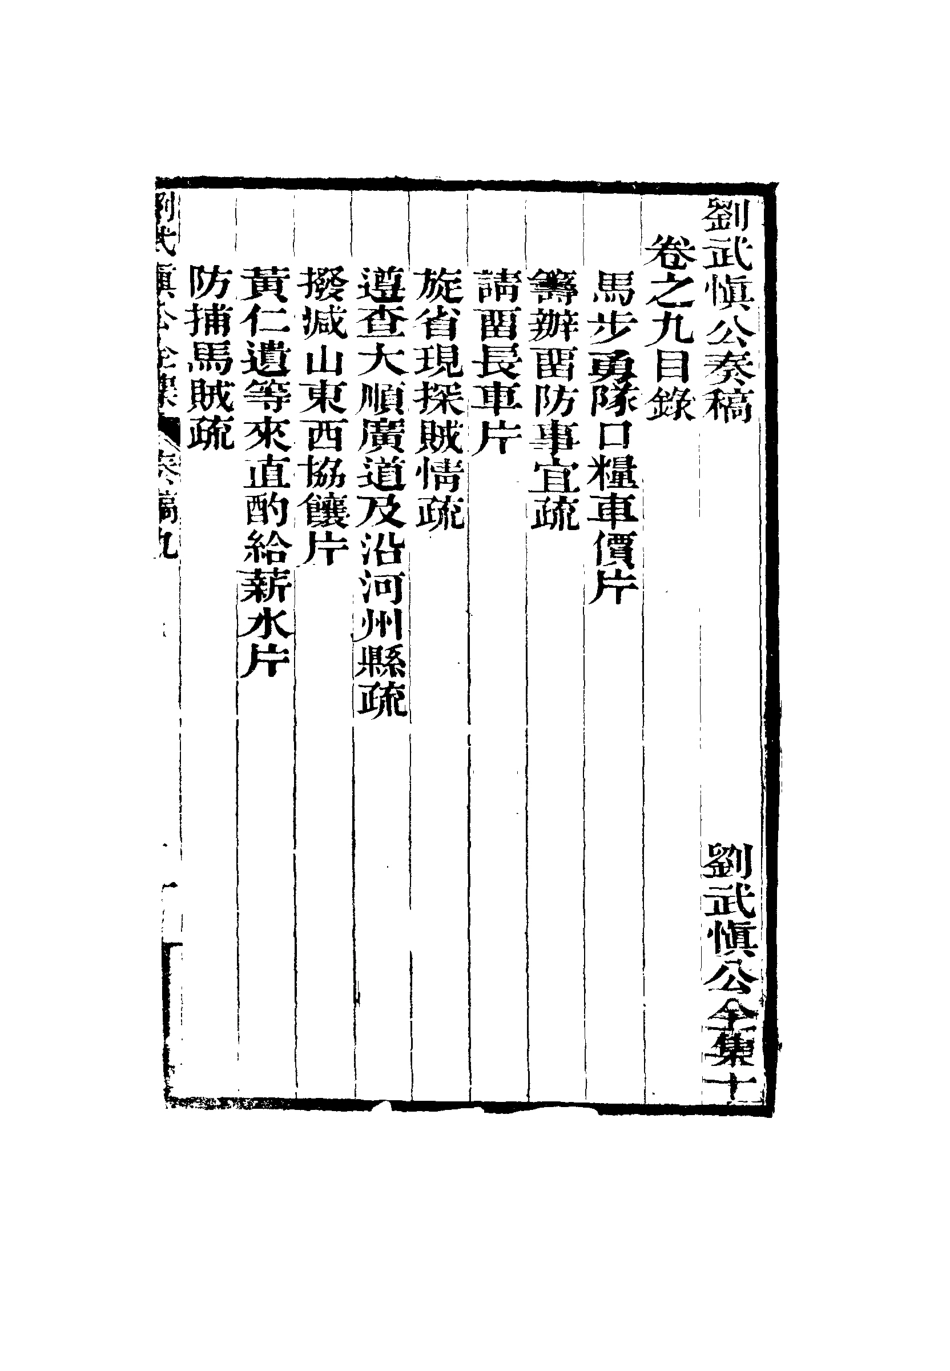 劉武愼公奏稿　劉武愼公全集十
卷之九目錄
馬步勇隊口糧車價片
籌辦畱防事宜疏
請畱長車片
旋省現探賊情疏
遵查大順廣道及沿河州縣疏
撥減山東西協饟片
黃仁遺等來直酌給薪水片
防捕馬賊疏
劉武愼公全集　奏稿九　一